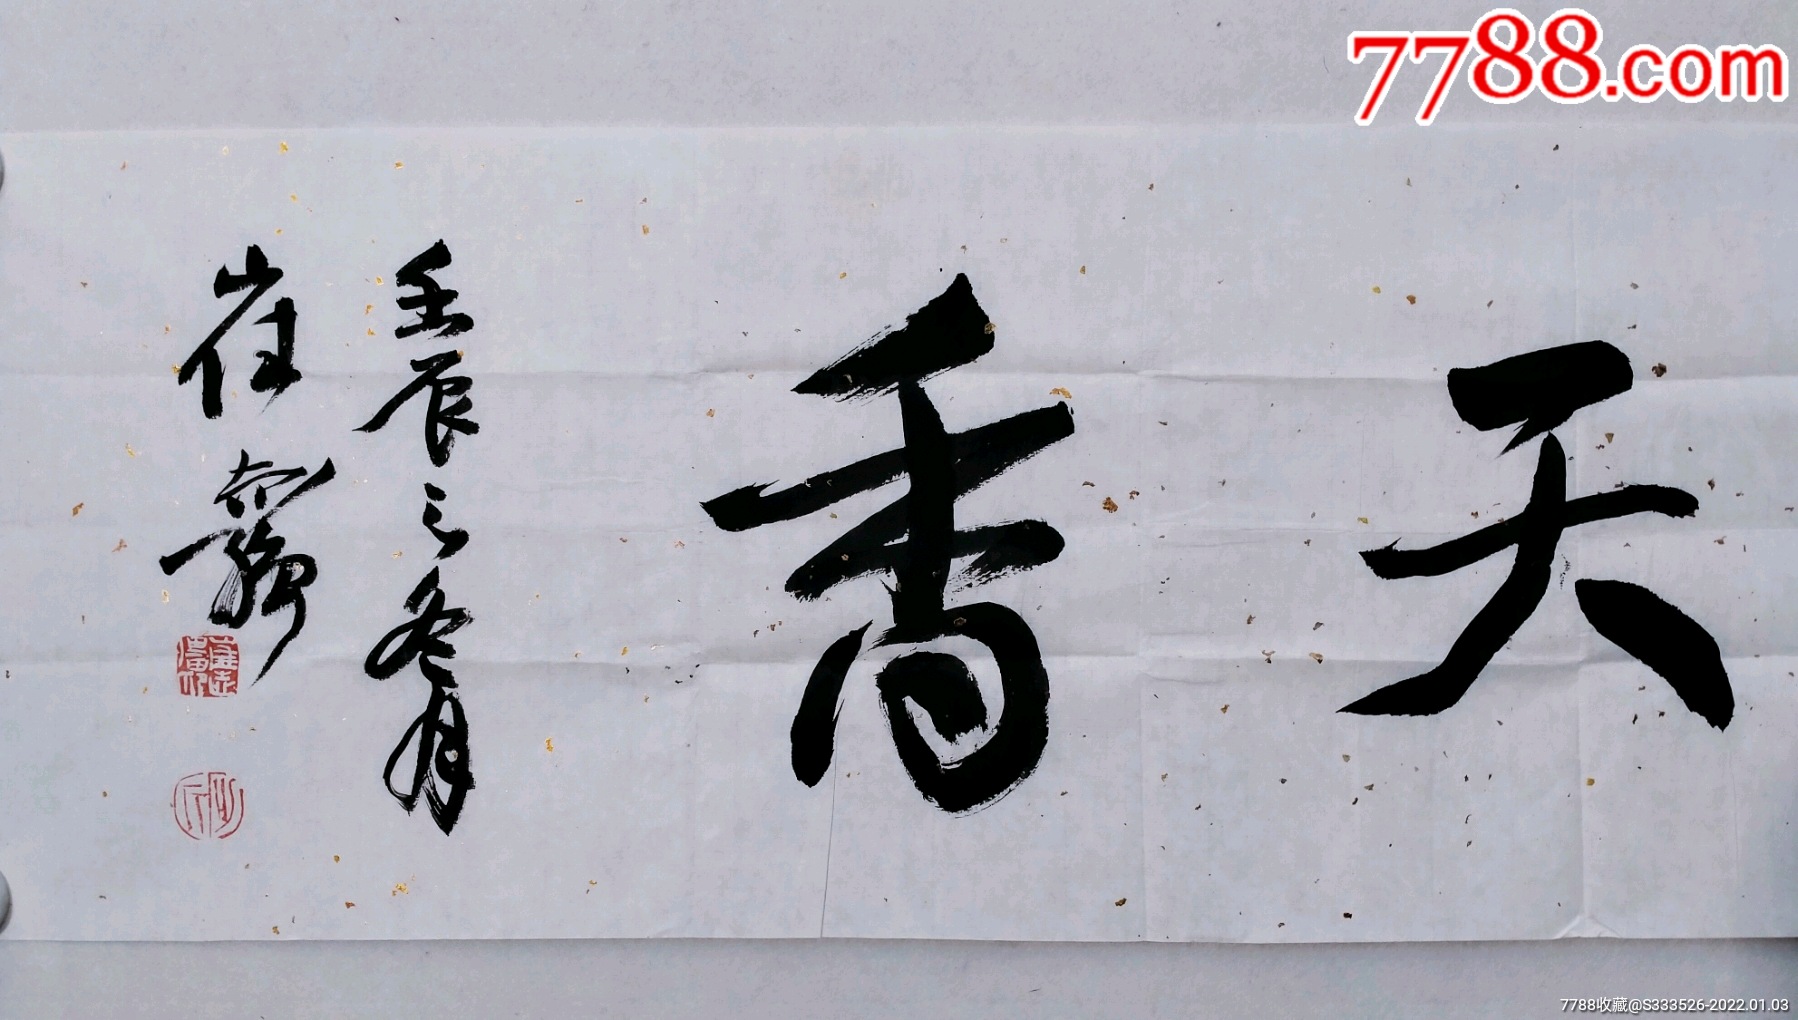 7788.com
天香
壬辰之冬月
崔
7788收藏@S333526-2022.01.03